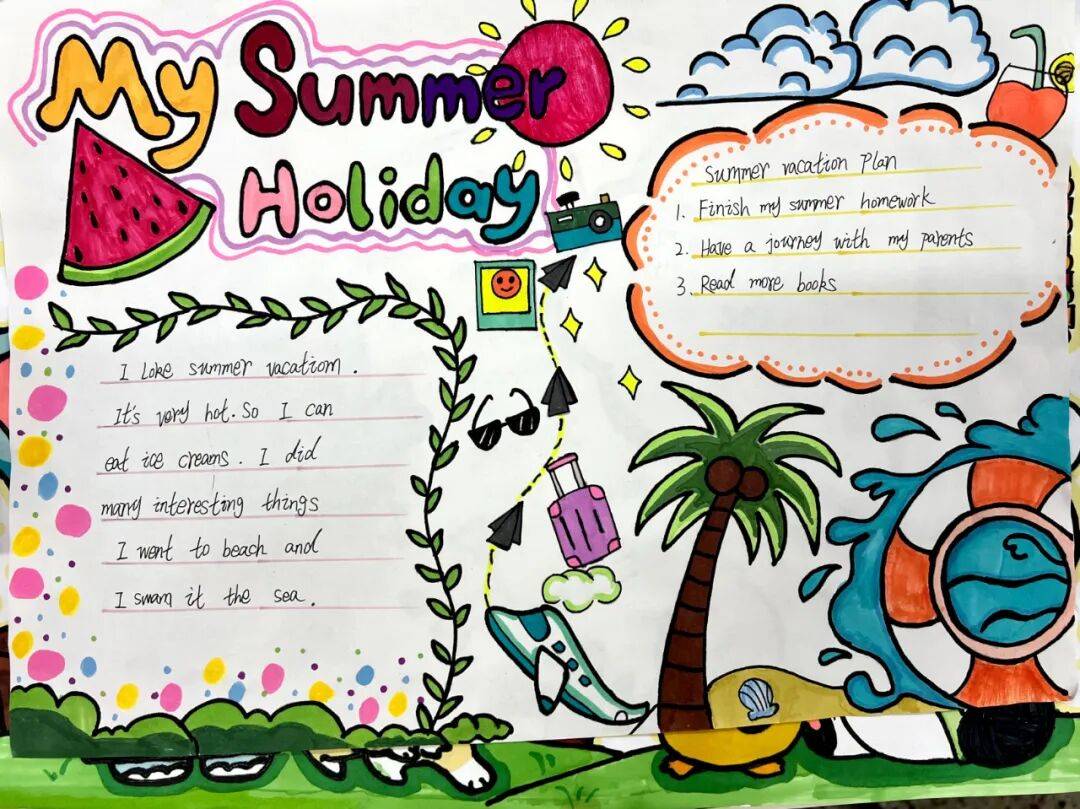 My Summer
Holiday
Summer vacation Plan
1. Finish my summer homework
2. Have a journey with my parents
3. Read more books
I Loke summer vacatiom.
It's very hot. So I can
eat ice creams. I did
many interesting things
I went to beach and
I swam it the sea.